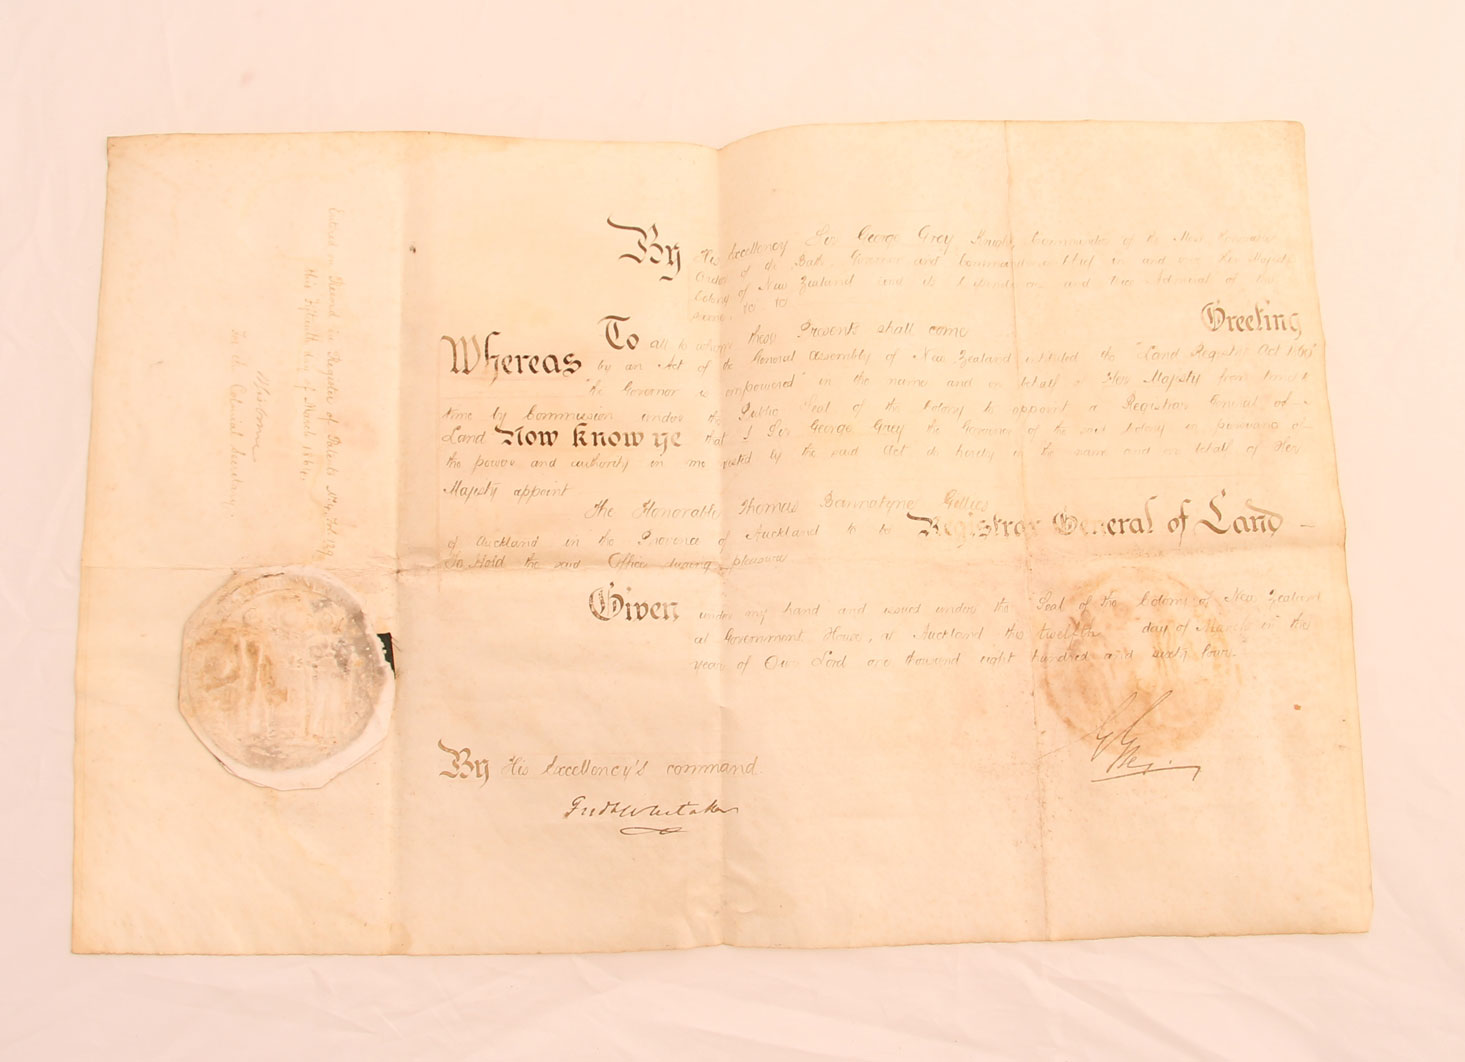 By His Excellency Sir George Grey Knight Commander of the Most Honorable
Order of the Bath, Governor and Commander in Chief in and over Her Majesty's
Colony of New Zealand and its Dependencies and Vice Admiral of the
same. &c &c
To all to whom these Presents shall come Greeting
Whereas by an Act of the General Assembly of New Zealand intituled the "Land Registry Act
"the Governor is empowered" in the name and on behalf of Her Majesty from time to
time by Commission under the Public Seal of the Colony to appoint a Registrar General of
Land Now Know ye that I Sir George Grey the Governor of the said Colony in pursuance of
the power and authority in me vested by the said Act do hereby in the name and on behalf of Her
Majesty appoint
The Honorable Thomas Bannatyne Gillies
of Auckland in the Province of Auckland to be Registrar General of Land
To Hold the said Office during pleasure
Given under my hand and issued under the Seal of the Colony of New Zealand
at Government House, at Auckland this twelfth day of March in the
year of Our Lord one thousand eight hundred and sixty four.
G Grey.
By His Excellency's command.
Fredk Whitaker
Entered on Record in Register of Patents No. Fol. 139
this Fifteenth day of March 1864.
W Gisborne
For the Colonial Secretary.